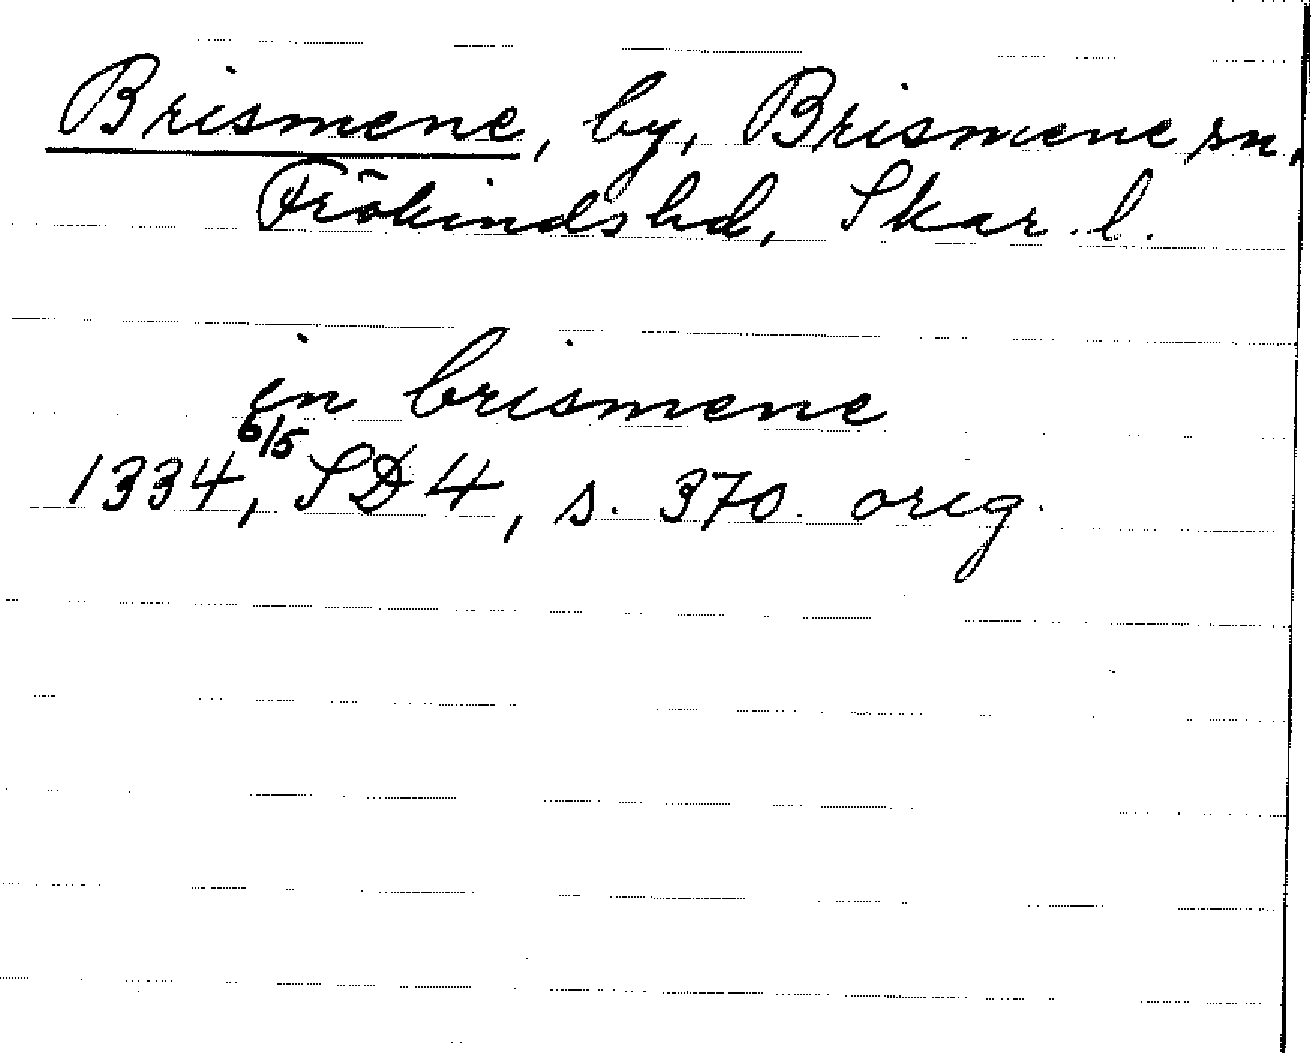 Brismene, by, Brismene sn,
Frökinds hd, Skar. l.
in brismene
6/5
1334, SD 4, s. 370. orig.